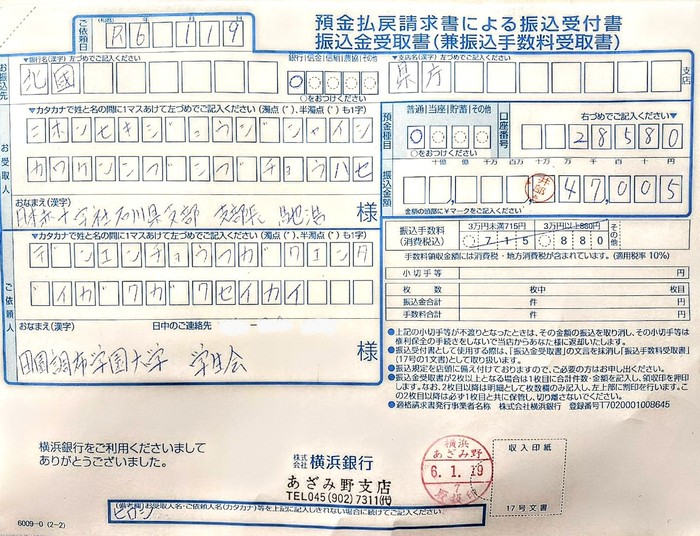 ご依頼日
R6 1 19
預金払戻請求書による振込受付書
振込金受取書(兼振込手数料受取書)
お振込先
▼銀行名(漢字) 左づめでご記入ください
銀行 信金 信組 農協 その他
▼支店名(漢字) 左づめでご記入ください
北國
○をおつけください
県庁
支店
お受取人
▼カタカナで姓と名の間に1マスあけて左づめでご記入ください (濁点(゛)、半濁点(゜)も1字)
ニホンセキジュウジシャイシ
カワケンシブシブチョウハセ
おなまえ(漢字)
日本赤十字社石川県支部 支部長 馳浩 様
預金種目
普通 当座 貯蓄 その他
○をおつけください
口座番号
右づめでご記入ください▼
28580
振込金額
十億 億 千万 百万 十万 万 千 百 十 円
47,005
金額の頭部に¥マークをご記入ください
ご依頼人
▼カタカナで姓と名の間に1マスあけて左づめでご記入ください (濁点(゛)、半濁点(゜)も1字)
デンエンチョウフガクエンダ
イガクガクセイカイ
おなまえ(漢字)
日中のご連絡先
田園調布学園大学 学生会 様
振込手数料
(消費税込)
3万円未満715円
3万円以上880円
その他
715
880
円
手数料領収金額には消費税・地方消費税が含まれています。(適用税率10%)
小切手等
円
枚数
枚中
枚目
振込金合計
件
円
手数料合計
件
円
●上記の小切手等が不渡りとなったときは、その金額の振込を取り消し、その小切手等は
権利保全の手続きをしないで当店からあなた様に返却いたします。
●振込受付書として使用する際は、「振込金受取書」の文言を抹消し「振込手数料受取書」
(17号の1文書)として取り扱います。
●振込規定を店頭に備え付けておりますので、ご必要の方はお申し出ください。
●振込金受取書が2枚以上となる場合は1枚目に合計件数・金額を記入し、領収印を押印
します。なお、2枚目以降は明細として枚数欄のみ記入し、左上部に割印を行います。こ
の2枚目以降は必ず1枚目と共に保管し、切り離さないでください。
●適格請求書発行事業者名称 株式会社横浜銀行 登録番号T7020001008645
横浜銀行をご利用くださいまして
ありがとうございました。
株式会社 横浜銀行
あざみ野支店
TEL045(902)7311(代)
横浜
あざみ野
6.1.19
7
収入印紙
17号文書
(備考欄)お受取人名・ご依頼人名(カタカナ)等を上記に記入しきれない場合に続けてご記入ください。
ヒロシ
6009-0 (2-2)